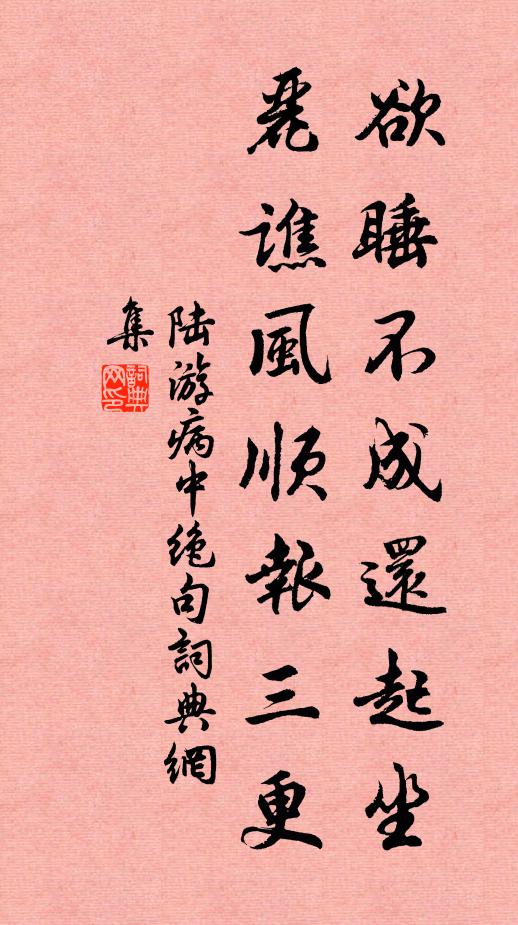 欲睡不成還起坐
麗譙風順報三更
陸游病中絶句詞典網
集
詞典网印